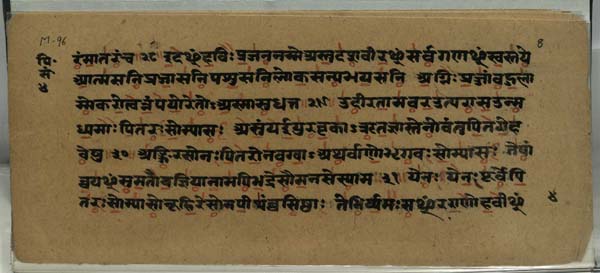 M-96
8
पि॰
४
रंमातरंच २८ इदᳪहविः प्रजननम्मेअस्तुदशवीरᳪसर्वगणᳪस्वस्तये
आत्मसनिप्रजासनिपशुसनिलोकसन्यभयसनि अग्निःप्रजांबहुला
म्मेकरोत्वन्नंपयोरेतोऽअस्मासुधत्त २९ उदीरतामवरउत्परासउन्म
ध्यमाःपितरःसोम्यासः असुंयईयुरवृकाऽऋतज्ञास्तेनोवंतुपितरोह
वेषु ३० अङ्गिरसोनःपितरोनवग्वाऽअथर्वाणोभृगवःसोम्यासः तेषां
व्वयᳪसुमतौयज्ञियानामपिभद्रेसौमनसेस्याम ३१ येनः येनःपूर्वेपि
तरःसोम्यासोनूहिरेसोमपीथंव्वसिष्ठाः तेभिर्यमःसᳪरराणोहवीᳪ
४